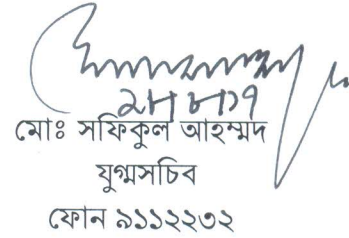 ২৮।৮।১৭
মোঃ সফিকুল আহম্মদ
যুগ্মসচিব
ফোন ৯১১২২৩২